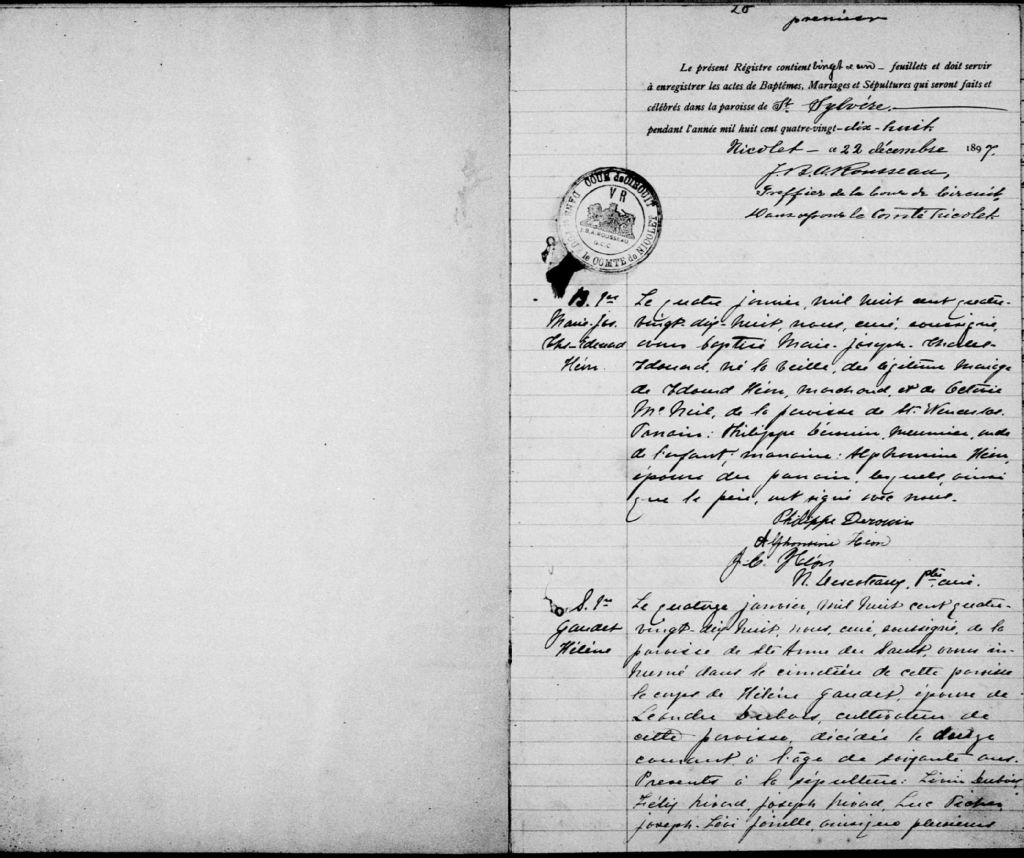 20
premier
Le présent Régistre contient vingt et un feuillets et doit servir
à enregistrer les actes de Baptêmes, Mariages et Sépultures qui seront faits et
célébrés dans la paroisse de St Sylvère.
pendant l'année mil huit cent quatre-vingt-dix-huit
Nicolet - ce 22 décembre 1897.
J. B. A. Rousseau,
Greffier de la Cour de Circuit
Dans et pour le Comté Nicolet
COUR de CIRCUIT
DANS et POUR le COMTE de NICOLET
VR
J.B.A. ROUSSEAU
G.C.C
B. 1er
Marie-Jos.
Chs-Edouard
Héon.
Le quatre janvier, mil huit cent quatre-
vingt-dix-huit, nous, curé, soussigné,
avons baptisé Marie-joseph-Charles-
Edouard, né la veille, du légitime mariage
de Edouard Héon, marchand, et de
McNeil, de la paroisse de St. Wenceslas.
Parrain: Philippe Derouin, meunier, oncle
de l'enfant, marraine: Alphonsine Héon,
épouse du parrain, lesquels, ainsi
que le père, ont signé avec nous.
Philippe Derouin
Alphonsine Héon
J. E. Héon
N. Descoteaux, Ptre curé.
S. 1re
Gaudet
Hélène
Le quatorze janvier, mil huit cent quatre-
vingt-dix-huit, nous, curé, soussigné, de la
paroisse de Ste Anne du Sault, avons in-
humé dans le cimetière de cette paroisse
le corps de Hélène Gaudet, épouse de
Léandre Dubois, cultivateur de
cette paroisse, décédée le douze
courant à l'âge de soixante ans.
Présents à la sépulture: Dubois,
Félix Rivard, joseph Rivard, Luc
joseph-Lévi ainsi que plusieurs